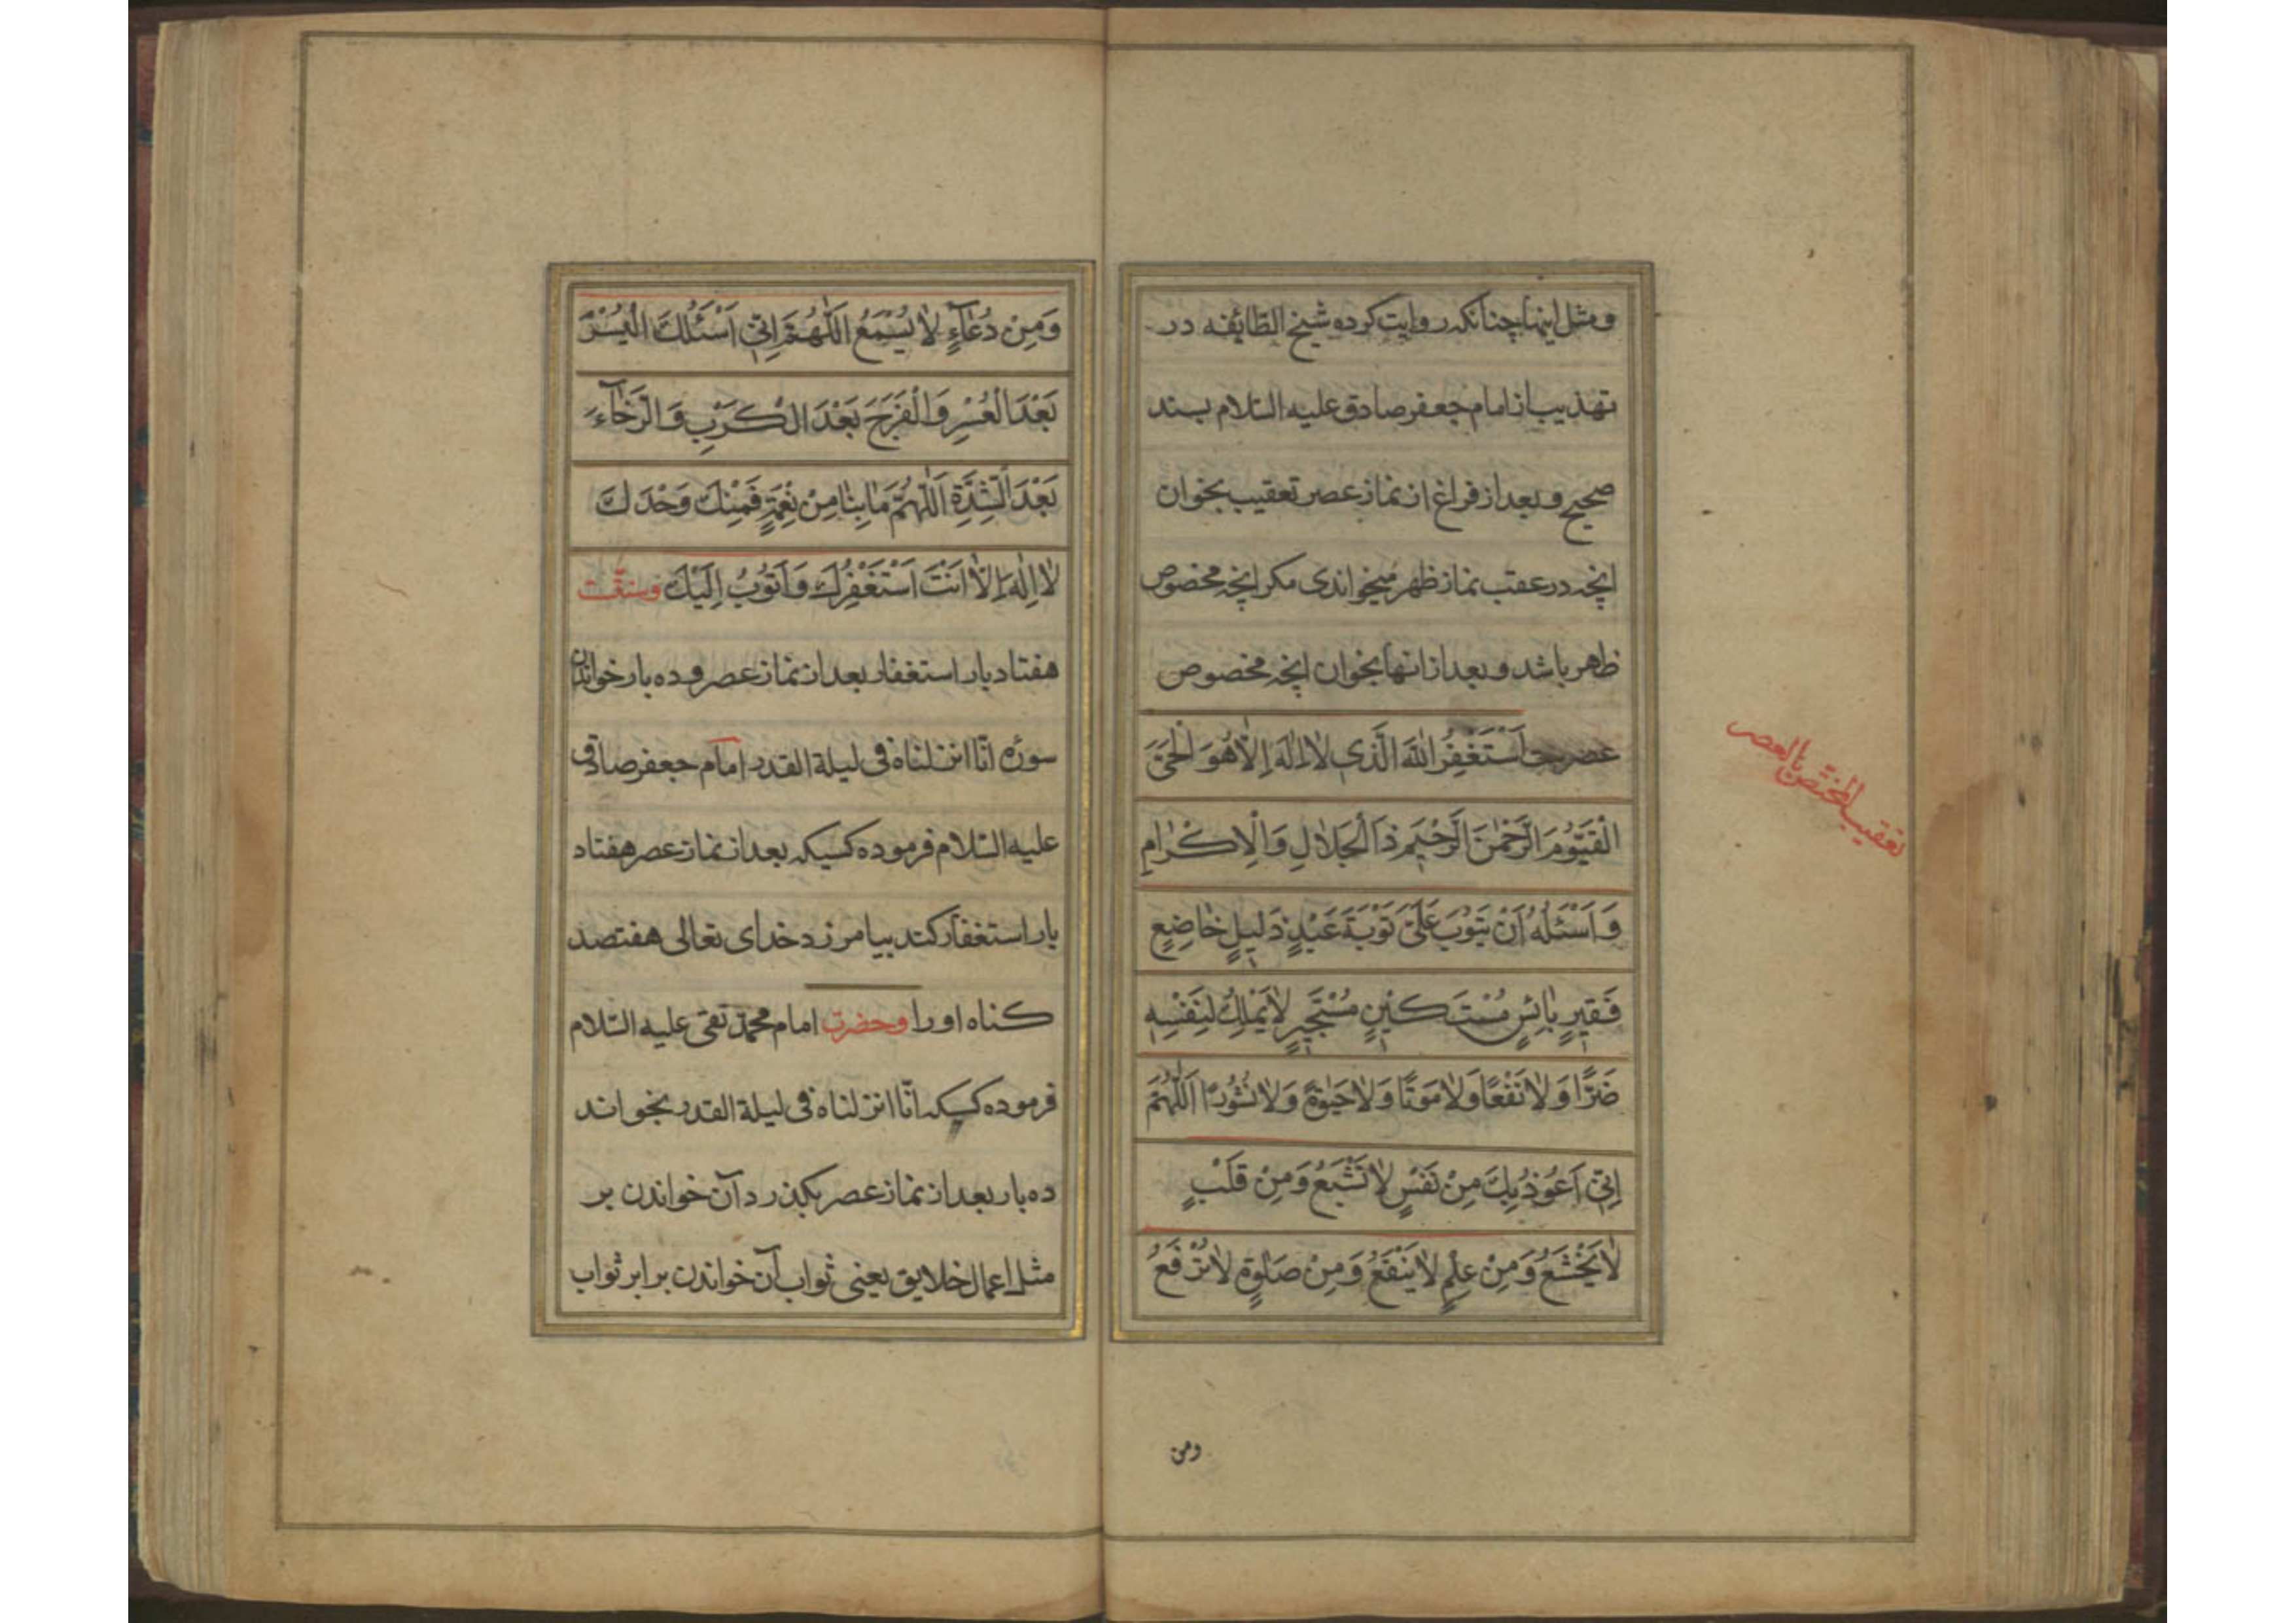 ومثل اینها چنانکه روایت کرده شیخ الطائفه در
تهذیب از امام جعفر صادق علیه السّلام بسند
صحیح و بعد از فراغ از نماز عصر تعقیب بخوان
انچه در عقب نماز ظهر میخواندی مکر انچه مخصوص
ظاهر باشد و بعد از انها بخوان انچه مخصوص
عصر اَسْتَغْفِرُ اللهَ الَّذی لاٰ اِلٰهَ اِلاّٰ هُوَ الْحَیَّ
الْقَیُّومَ الرَّحْمٰنَ الرَّحْیمَ ذَا الْجَلاٰلِ وَالْاِکْرٰامِ
وَ اَسْئَلُهُ اَنْ یَتُوبَ عَلَیَّ تَوْبَةَ عَبْدٍ ذَلیلٍ خٰاضِعٍ
فَقیرٍ بٰائِسٍ مُسْتَکینٍ مُسْتَجیرٍ لاٰ یَمْلِكُ لِنَفْسِهِ
ضَرًّا وَلاٰ نَفْعًا وَلاٰ مَوْتًا وَلاٰ حَیٰوةً وَلاٰ نُشُورًا اَللّٰهُمَّ
اِنّی اَعُوذُ بِكَ مِنْ نَفْسٍ لاٰ تَشْبَعُ وَمِنْ قَلْبٍ
لاٰ یَخْشَعُ وَمِنْ عِلْمٍ لاٰ یَنْفَعُ وَمِنْ صَلٰوةٍ لاٰ تُرْفَعُ
تعقیب المختصّ بالعصر
ومن
وَمِنْ دُعٰآءٍ لاٰ یُسْمَعُ اَللّٰهُمَّ اِنّی اَسْئَلُكَ الْیُسْرَ
بَعْدَ الْعُسْرِ وَالْفَرَجَ بَعْدَ الْکَرْبِ وَالرَّخٰآءَ
بَعْدَ الشِّدَّةِ اَللّٰهُمَّ مٰا بِنٰا مِنْ نِعْمَةٍ فَمِنْكَ وَحْدَكَ
لاٰ اِلٰهَ اِلاّٰ اَنْتَ اَسْتَغْفِرُكَ وَاَتُوبُ اِلَیْكَ وسنّت
هفتاد بار استغفار بعد از نماز عصر و ده بار خواندن
سوره انّا انزلناه فی لیلة القدر امام جعفر صادق
علیه السّلام فرموده کسیکه بعد از نماز عصر هفتاد
بار استغفار کند بیامرزد خدای تعالی هفتصد
کناه او را وحضرت امام محمّد تقی علیه السّلام
فرموده کسیکه انّا انزلناه فی لیلة القدر بخواند
ده بار بعد از نماز عصر بکذرد آن خواندن بر
مثل اعمال خلایق یعنی ثواب آن خواندن برابر ثواب